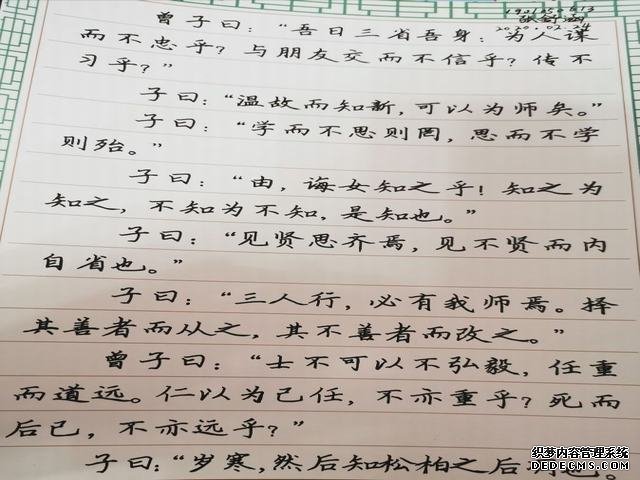 1901050613
张舒涵
2020.02.24
曾子曰：“吾日三省吾身：为人谋
而不忠乎？与朋友交而不信乎？传不
习乎？”
子曰：“温故而知新，可以为师矣。”
子曰：“学而不思则罔，思而不学
则殆。”
子曰：“由，诲女知之乎！知之为
知之，不知为不知，是知也。”
子曰：“见贤思齐焉，见不贤而内
自省也。”
子曰：“三人行，必有我师焉。择
其善者而从之，其不善者而改之。”
曾子曰：“士不可以不弘毅，任重
而道远。仁以为己任，不亦重乎？死而
后已，不亦远乎？”
子曰：“岁寒，然后知松柏之后
织梦内容管理系统
DEDECMS.COM